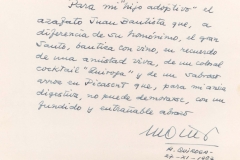 Para mi "hijo adoptivo" el
azafato Juan Bautista que, a
diferencia de su homónimo, el gran
Santo, bautiza con vino, mi recuerdo
de una amistad viva, de un cordial
cocktail "Europa" y de un sabroso
arroz en Picasent que, para mi área
digestiva, no puede demorarse, con un
fundido y entrañable abrazo